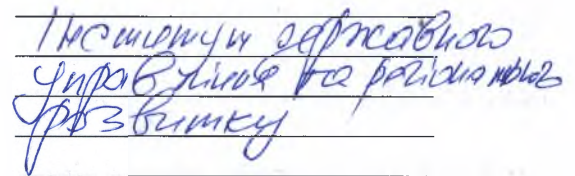 Інститут державного
управління та регіонального
розвитку